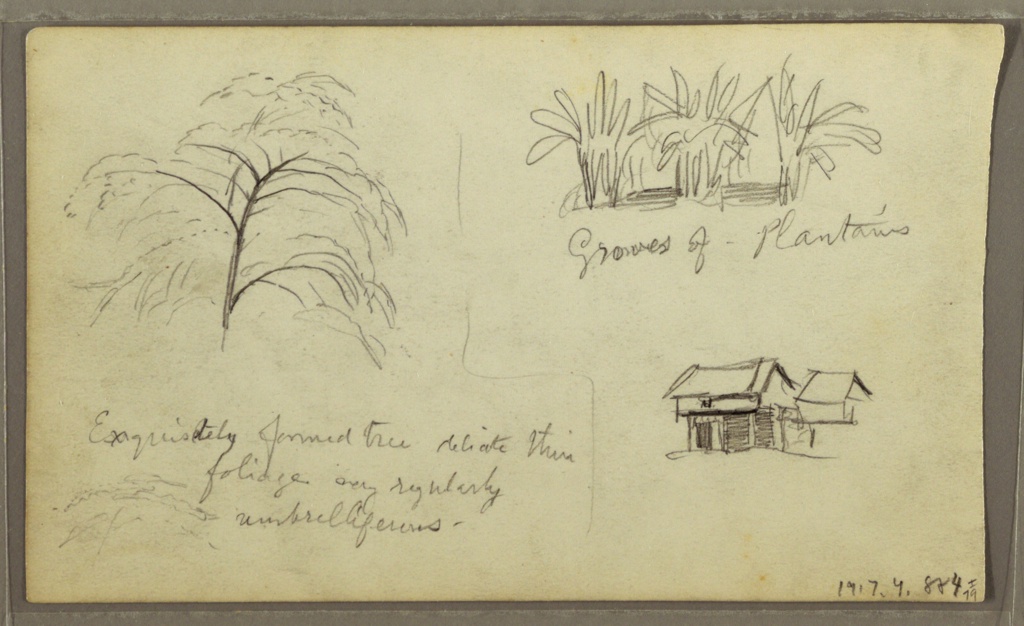 Groves of - Plantains
Exquisitely formed tree delicate thin
foliage very regularly
umbrelliferous -
1917.4.884